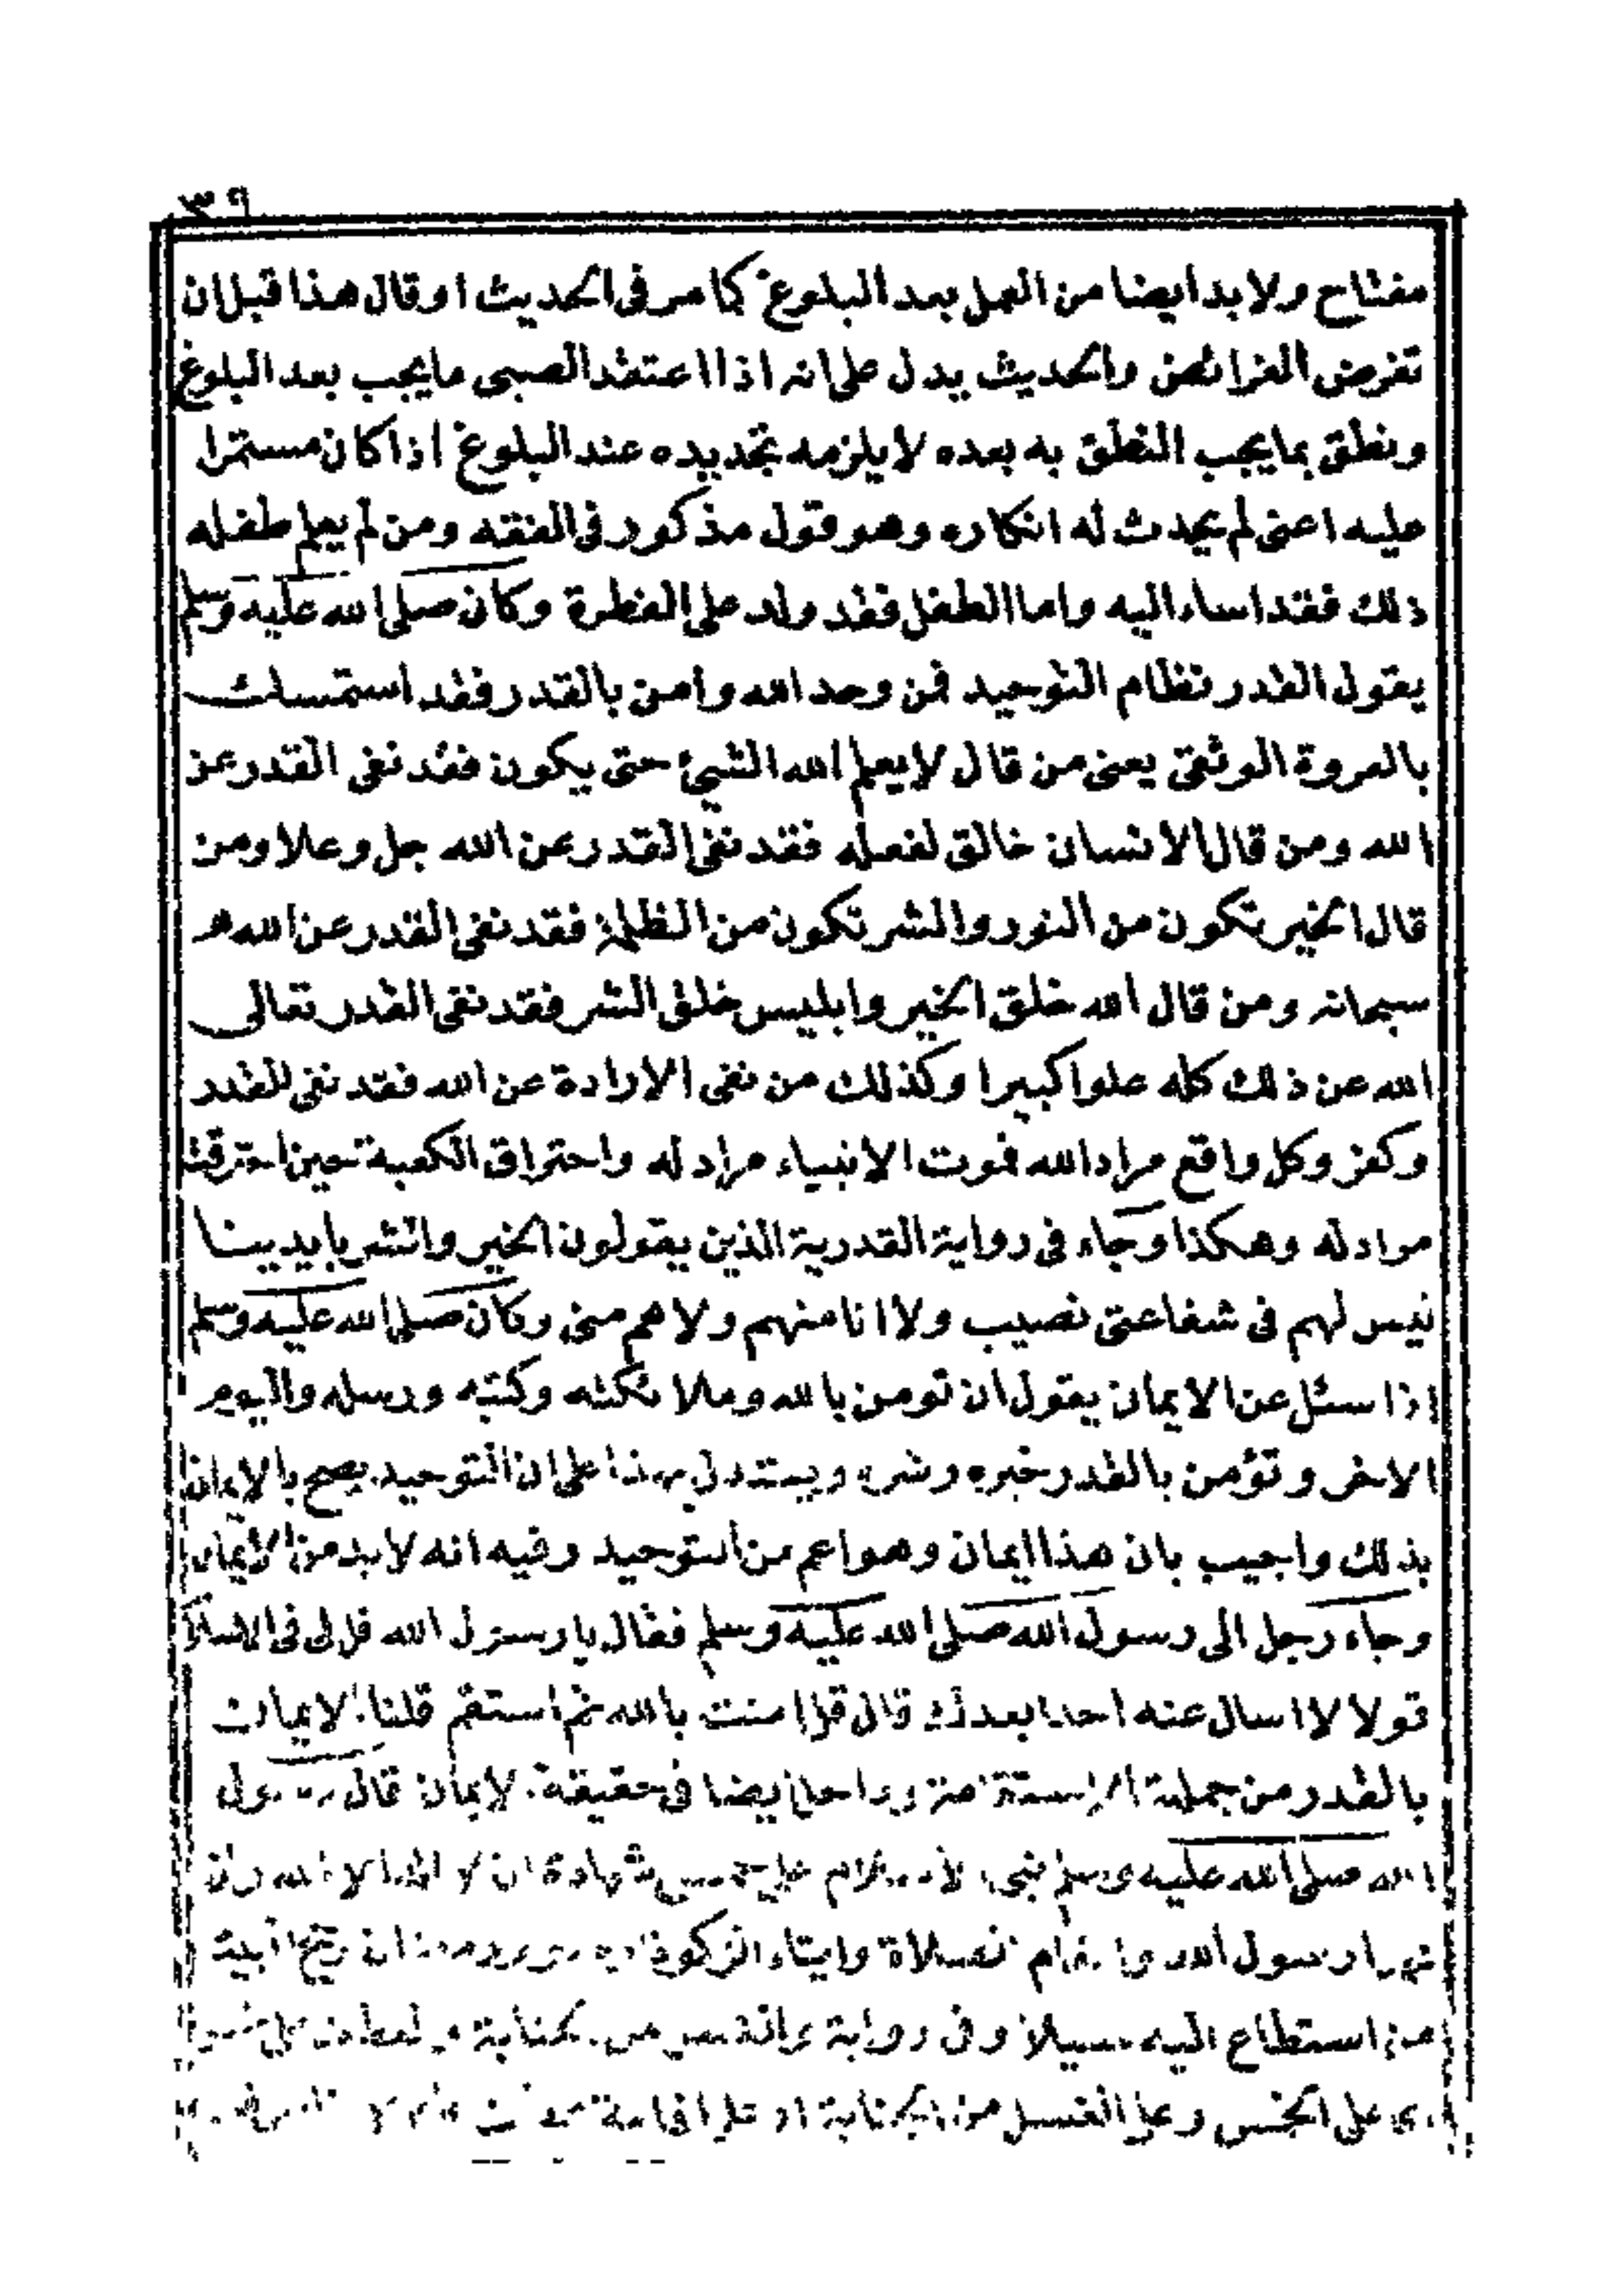 ٣٩
مفتاح ولا بد ايضا من العمل بعد البلوغ كما مر فى الحديث او قال هذا قبل ان
تفرض الفرائض والحديث يدل على انه اذا اعتقد الصبى ما يجب بعد البلوغ
ونطق بما يجب النطق به بعده لا يلزمه تجديده عند البلوغ اذا كان مستمرا
عليه اعنى لم يحدث له انكاره وهو قول مذكور فى الفقه ومن لم يعلم طفله
ذلك فقد اساء اليه واما الطفل فقد ولد على الفطرة وكان صلى الله عليه وسلم
يقول القدر نظام التوحيد فمن وحد الله وامن بالقدر فقد استمسك
بالعروة الوثقى يعنى من قال لا يعلم الله الشيئ حتى يكون فقد نفى القدر عن
الله ومن قال الانسان خالق لفعله فقد نفى القدر عن الله جل وعلا ومن
قال الخير تكون من النور والشر تكون من الظلمة فقد نفى القدر عن الله
سبحانه ومن قال الله خلق الخير وابليس خلق الشر فقد نفى القدر تعالى
الله عن ذلك كله علوا كبيرا وكذلك من نفى الارادة عن الله فقد نفى القدر
وكفر وكل واقع مراد الله فموت الانبياء مراد له واحتراق الكعبة حين احترقت
مراد له وهكذا وجاء فى رواية القدرية الذين يقولون الخير والشر بايدينا
ليس لهم فى شفاعتى نصيب ولا انا منهم ولا هم منى وكان صلى الله عليه وسلم
اذا سئل عن الايمان يقول ان تومن بالله وملائكته وكتبه ورسله واليوم
الاخر وتؤمن بالقدر خيره وشره ويستدل بهذا على ان التوحيد يصح بالايمان
بذلك واجيب بان هذا ايمان وهو اعم من التوحيد وفيه انه لا بد من الايمان
وجاء رجل الى رسول الله صلى الله عليه وسلم فقال يا رسول الله قل لى فى الاسلام
قولا لا اسال عنه احدا بعدك قال قل امنت بالله ثم استقم قلنا الايمان
بالقدر من جملة الاستقامة وداخل ايضا فى حقيقة الايمان قال رسول
الله صلى الله عليه وسلم بنى الاسلام على خمس شهادة ان لا اله الا الله وان
رسول الله واقام الصلاة وايتاء الزكوة البيت
من استطاع اليه سبيلا وفى رواية
على الخمس وعلى الغسل من الجنابة